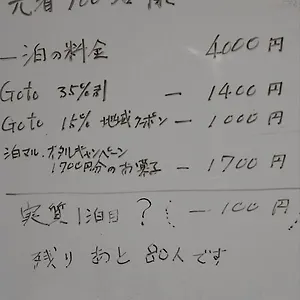 一泊の料金 4000円
Goto 35%割 − 1400円
Goto 15% 地域クーポン − 1000円
泊マル、ホタルキャンペーン
1700円分のお菓子 − 1700円
実質1泊目? (−100円
残り あと 80人です